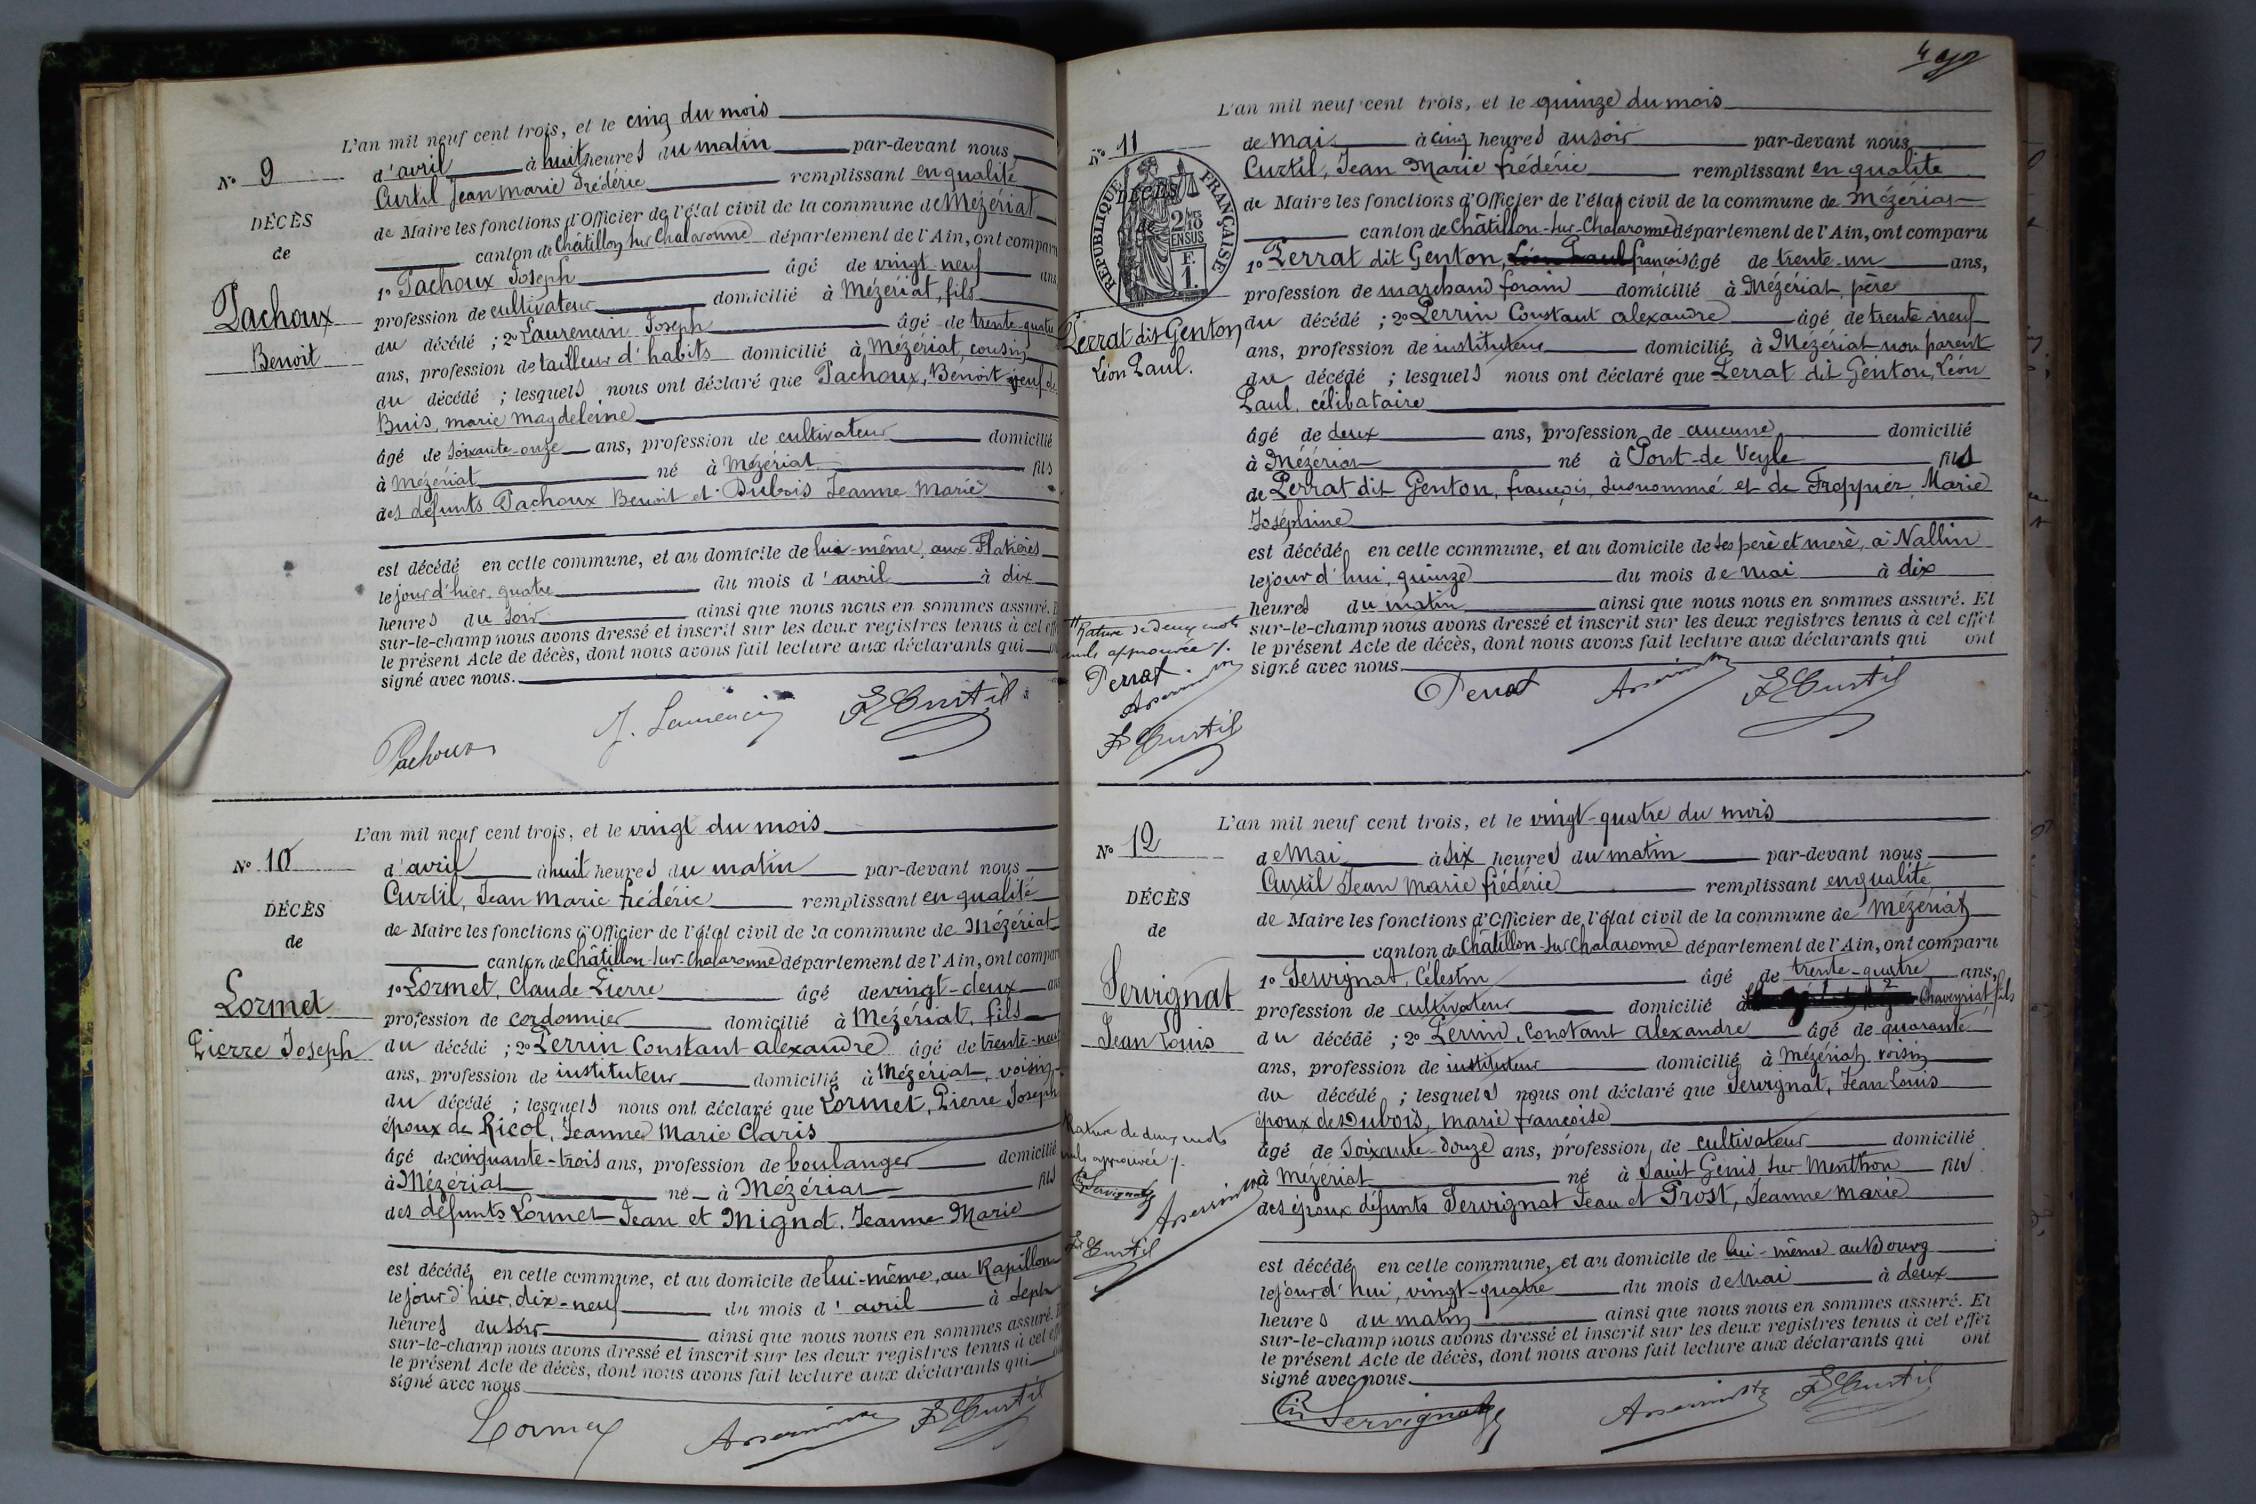 L'an mil neuf cent trois, et le cinq du mois
d'avril à huit heures du matin par-devant nous
Curtil Jean Marie Frédéric remplissant en qualité
de Maire les fonctions d'Officier de l'état civil de la commune de Mézériat
canton de Châtillon sur Chalaronne département de l'Ain, ont comparu
1o Pachoux Joseph âgé de vingt-neuf ans
profession de cultivateur domicilié à Mézériat, fils
du décédé ; 2o Laurencin Joseph âgé de trente-quatre
ans, profession de tailleur d'habits domicilié à Mézériat, cousin
du décédé ; lesquels nous ont déclaré que Pachoux, Benoit veuf de
Buis, marie magdeleine
âgé de soixante-onze ans, profession de cultivateur domicilié
à Mézériat né à Mézériat fils
des défunts Pachoux Benoit et Dubois Jeanne Marie
est décédé en cette commune, et au domicile de lui-même, aux Flatières
le jour d'hier, quatre du mois d'avril à dix
heures du soir ainsi que nous nous en sommes assuré. E
sur-le-champ nous avons dressé et inscrit sur les deux registres tenus à cet eff
le présent Acte de décès, dont nous avons fait lecture aux déclarants qui
signé avec nous.
No 9
DÉCÈS
de
Pachoux
Benoit
Pachoux J. Laurencin F Curtil
L'an mil neuf cent trois, et le vingt du mois
d'avril à huit heures du matin par-devant nous
Curtil, Jean Marie Frédéric remplissant en qualité
de Maire les fonctions d'Officier de l'état civil de la commune de Mézériat
canton de Châtillon-sur-Chalaronne département de l'Ain, ont comparu
1o Lormet, Claude Pierre âgé de vingt-deux ans
profession de cordonnier domicilié à Mézériat, fils
du décédé ; 2o Perrin Constant alexandre âgé de trente-neuf
ans, profession de instituteur domicilié à Mézériat, voisin
du décédé ; lesquels nous ont déclaré que Lormet, Pierre Joseph
époux de Ricol, Jeanne Marie Claris
âgé de cinquante-trois ans, profession de boulanger domicilié
à Mézériat né à Mézériat fils
des défunts Lormet Jean et Mignot, Jeanne Marie
est décédé en cette commune, et au domicile de lui-même, au Rapillon
le jour d'hier, dix-neuf du mois d'avril à sept
heures du soir ainsi que nous nous en sommes assuré. E
sur-le-champ nous avons dressé et inscrit sur les deux registres tenus à cet eff
le présent Acte de décès, dont nous avons fait lecture aux déclarants qui
signé avec nous
No 10
DÉCÈS
de
Lormet
Pierre Joseph
Lormet F Curtil
L'an mil neuf cent trois, et le quinze du mois
de Mai à cinq heures du soir par-devant nous
Curtil, Jean Marie frédéric remplissant en qualité
de Maire les fonctions d'Officier de l'état civil de la commune de Mézériat
canton de Châtillon-sur-Chalaronne département de l'Ain, ont comparu
1o Perrat dit Genton, Léon Paul françois âgé de trente-un ans,
profession de marchand forain domicilié à Mézériat, père
du décédé ; 2o Perrin Constant alexandre âgé de trente neuf
ans, profession de instituteur domicilié à Mézériat non parent
du décédé ; lesquels nous ont déclaré que Perrat dit Genton, Léon
Paul, célibataire
âgé de deux ans, profession de aucune domicilié
à Mézériat né à Pont-de Veyle fils
de Perrat dit Genton, françois, susnommé et de Froppier, Marie
Joséphine
est décédé en cette commune, et au domicile de ses père et mère, à Nallin
le jour d'hui, quinze du mois de Mai à dix
heures du matin ainsi que nous nous en sommes assuré. Et
sur-le-champ nous avons dressé et inscrit sur les deux registres tenus à cet effet
le présent Acte de décès, dont nous avons fait lecture aux déclarants qui ont
signé avec nous.
No 11
DÉCÈS
de
RÉPUBLIQUE FRANÇAISE
2/10 EN SUS
F. 1.
Perrat dit Genton
Léon Paul.
Rature de deux mots
nuls approuvée
Perrat
F Curtil
Perrat F Curtil
L'an mil neuf cent trois, et le vingt-quatre du mois
de Mai à six heures du matin par-devant nous
Curtil Jean Marie frédéric remplissant en qualité
de Maire les fonctions d'Officier de l'état civil de la commune de Mézériat
canton de Châtillon-sur Chalaronne département de l'Ain, ont comparu
1o Servignat, Célestin âgé de trente-quatre ans,
profession de cultivateur domicilié Chaveyriat, fils
du décédé ; 2o Perrin, Constant alexandre âgé de quarante
ans, profession de instituteur domicilié à Mézériat voisin
du décédé ; lesquels nous ont déclaré que Servignat, Jean Louis
époux de Dubois, marie françoise
âgé de soixante-douze ans, profession de cultivateur domicilié
à Mézériat né à Saint Genis sur Menthon fils
des époux défunts Servignat Jean et Prost, Jeanne Marie
est décédé en cette commune, et au domicile de lui-même au Bourg
le jour d'hui, vingt-quatre du mois de Mai à deux
heures du matin ainsi que nous nous en sommes assuré. Et
sur-le-champ nous avons dressé et inscrit sur les deux registres tenus à cet effet
le présent Acte de décès, dont nous avons fait lecture aux déclarants qui ont
signé avec nous.
No 12
DÉCÈS
de
Servignat
Jean Louis
Rature de deux mots
nuls approuvée
Servignat
F Curtil
Servignat F Curtil